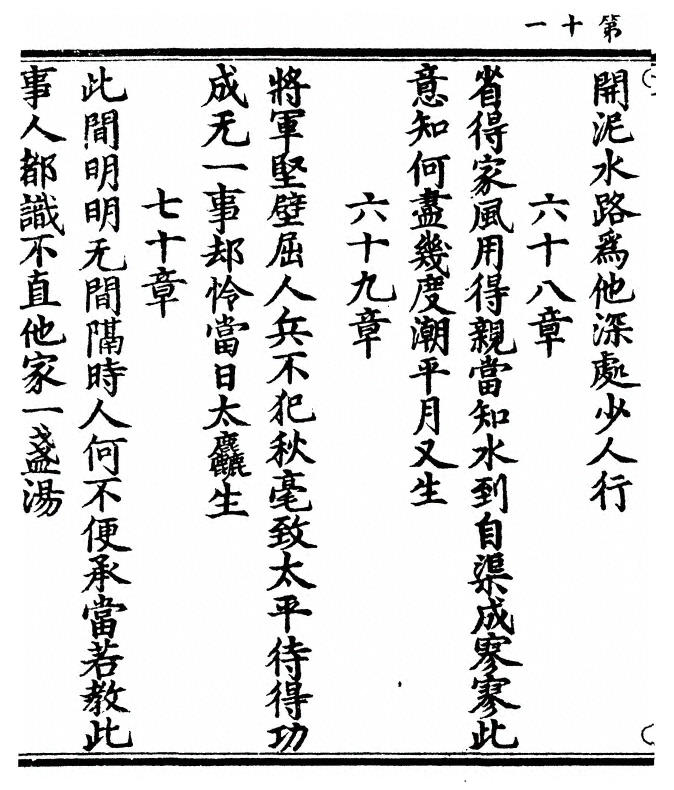 第十一
開泥水路爲他深處少人行
六十八章
省得家風用得親當知水到自渠成寥寥此
意知何盡幾度潮平月又生
六十九章
將軍堅壁屈人兵不犯秋毫致太平待得功
成无一事却怜當日太麤生
七十章
此間明明无間隔時人何不便承當若教此
事人都識不直他家一盞湯